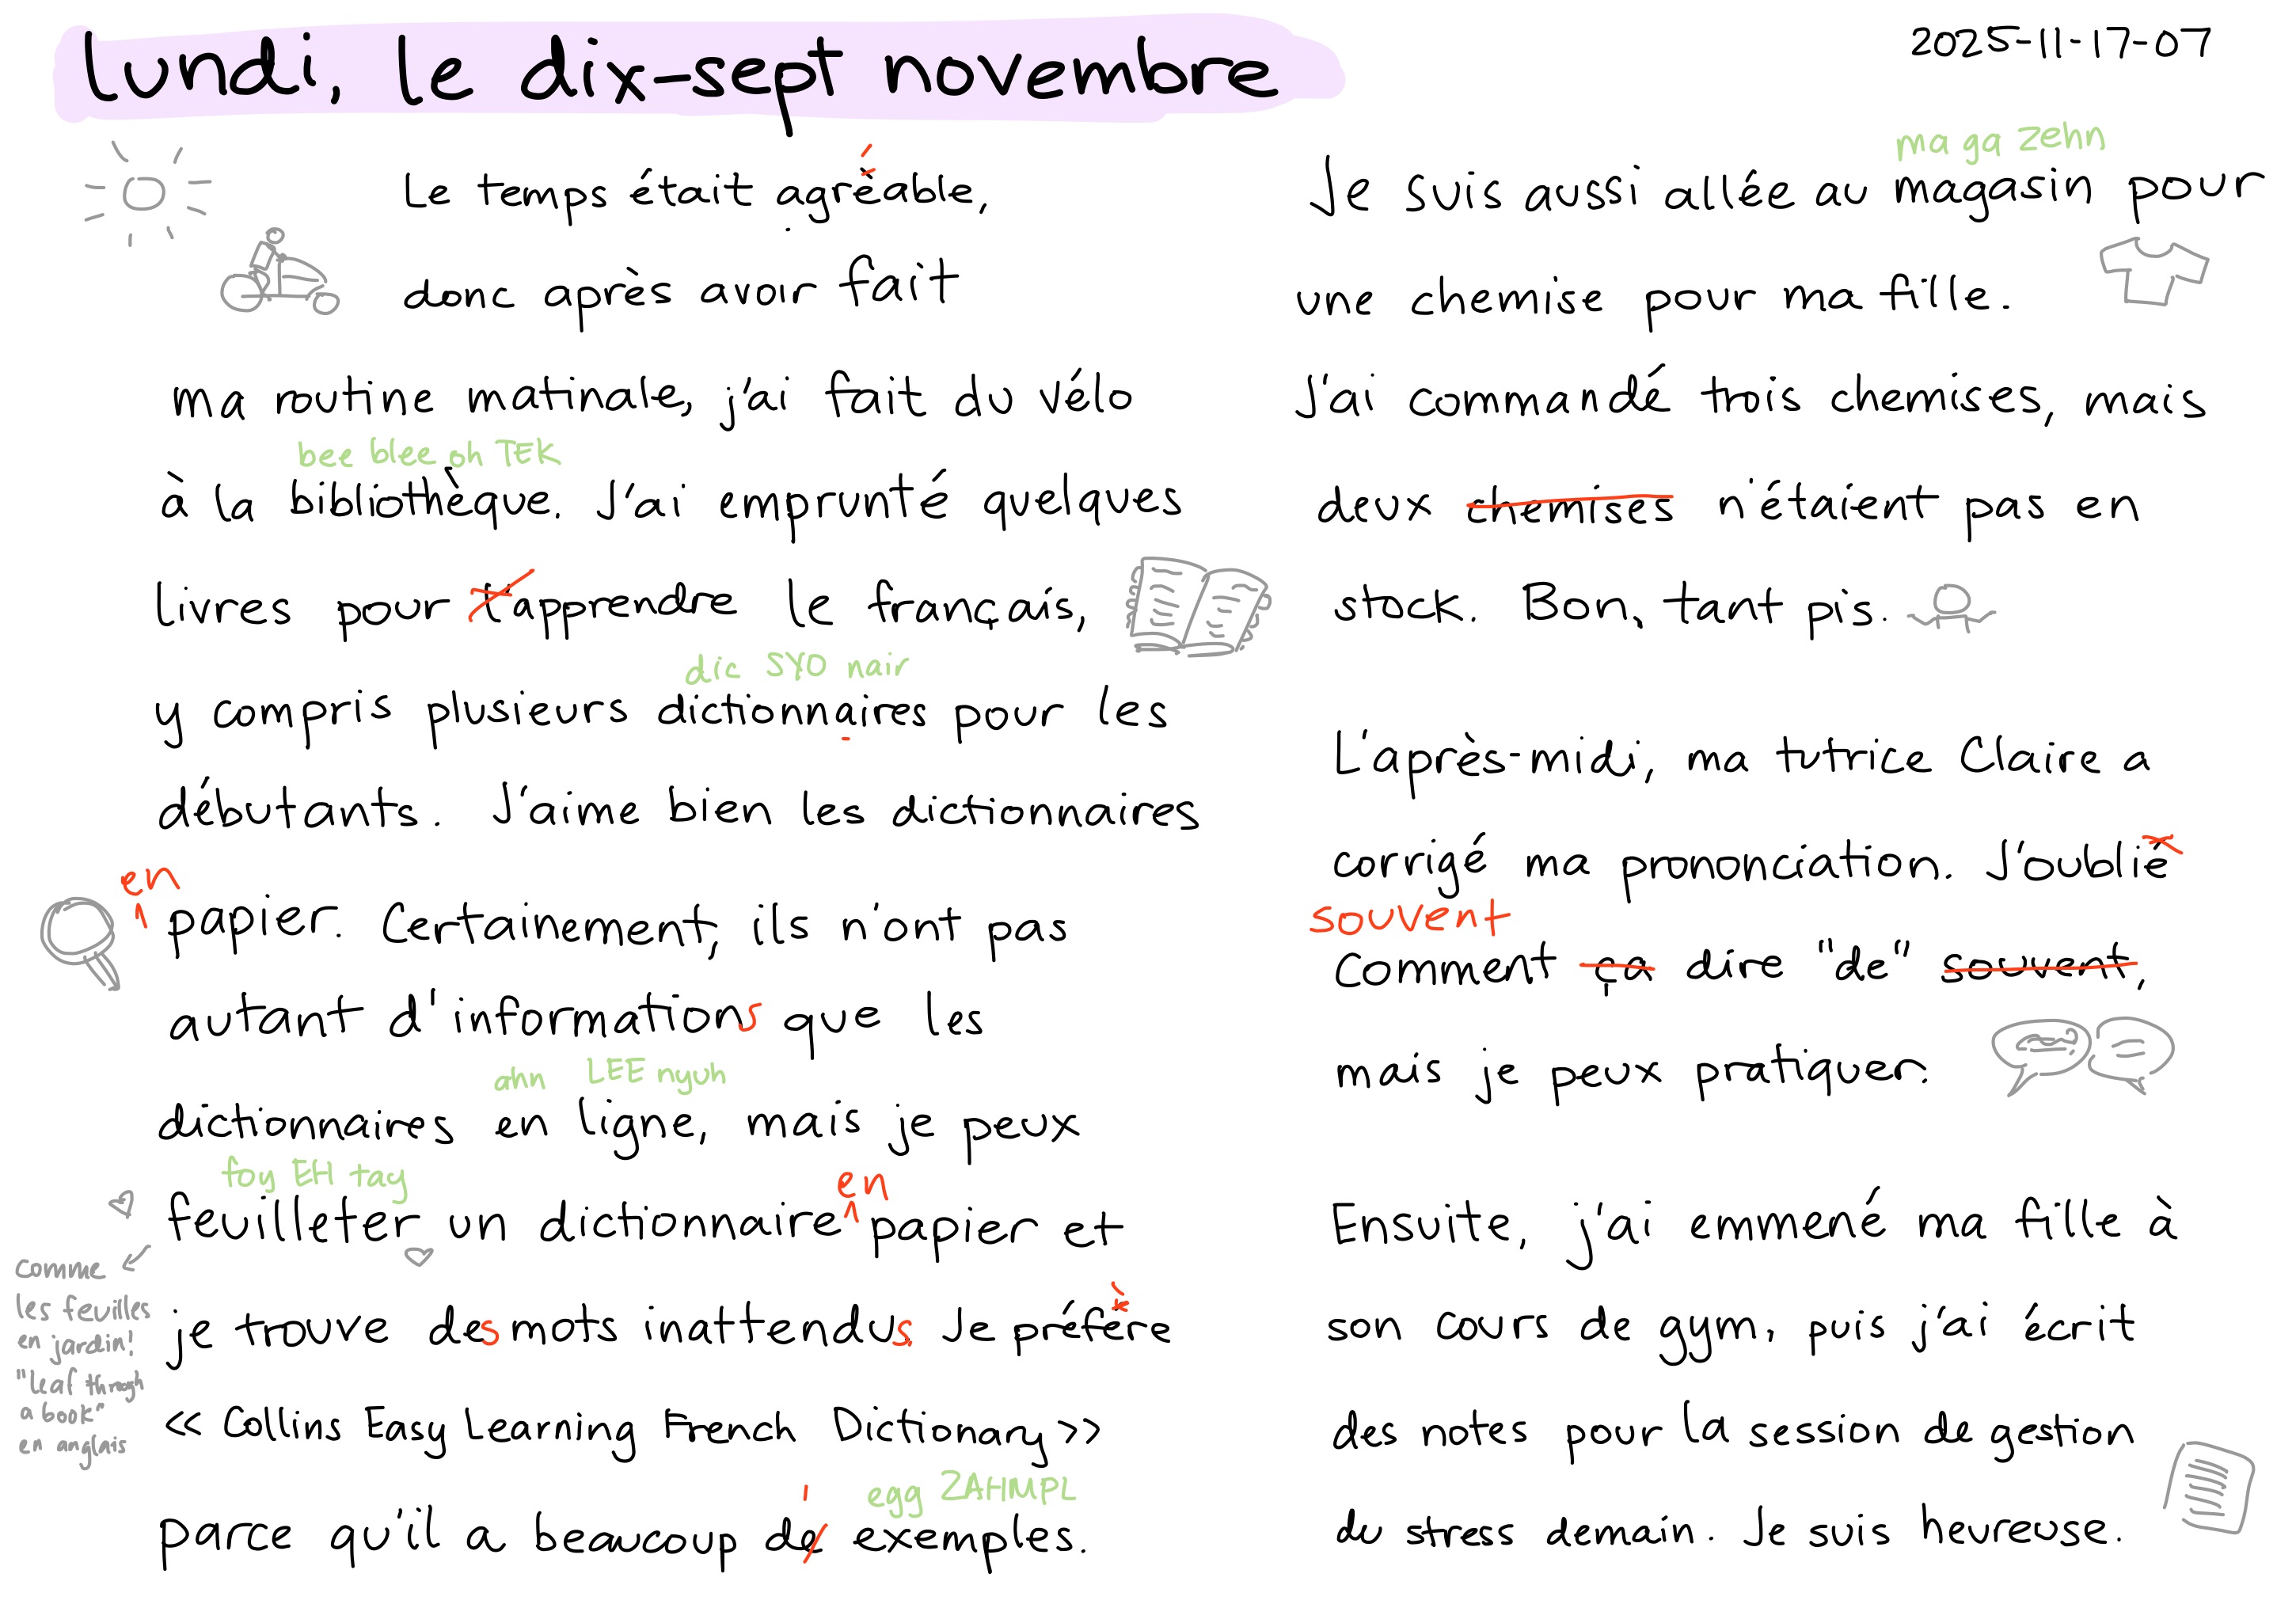 lundi, le dix-sept novembre
2025-11-17-07
Le temps était agréable,
donc après avoir fait
ma routine matinale, j'ai fait du vélo
bee blee oh TEK
à la bibliothèque. J'ai emprunté quelques
livres pour l'apprendre le français,
dic SYO nair
y compris plusieurs dictionnaires pour les
débutants. J'aime bien les dictionnaires
en
papier. Certainement, ils n'ont pas
autant d'informations que les
ahn LEE nyuh
dictionnaires en ligne, mais je peux
foy EH tay
en
feuilleter un dictionnaire papier et
comme
les feuilles
en jardin!
"leaf through
a book"
en anglais
je trouve des mots inattendus. Je préfère
<< Collins Easy Learning French Dictionary >>
egg ZAHMPL
parce qu'il a beaucoup de exemples.
ma ga zehn
Je suis aussi allée au magasin pour
une chemise pour ma fille.
J'ai commandé trois chemises, mais
deux chemises n'étaient pas en
stock. Bon, tant pis.
L'après-midi, ma tutrice Claire a
corrigé ma prononciation. J'oublié
souvent
comment ça dire "de" souvent,
mais je peux pratiquer.
Ensuite, j'ai emmené ma fille à
son cours de gym, puis j'ai écrit
des notes pour la session de gestion
du stress demain. Je suis heureuse.